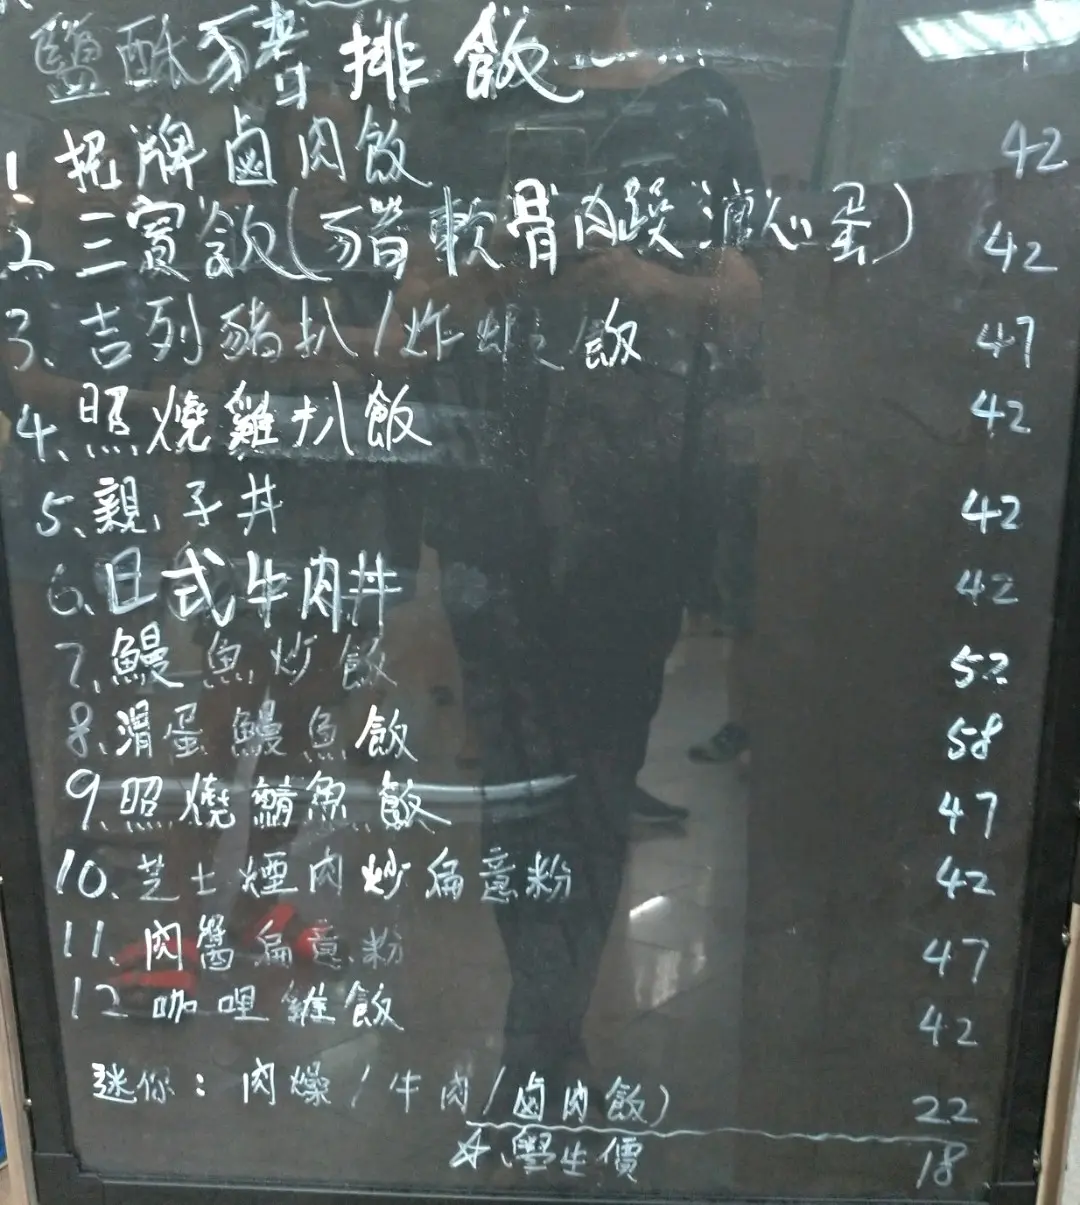 鹽酥豬排飯
1 招牌鹵肉飯 42
2、三寶飯(豬軟骨肉燥溏心蛋) 42
3、吉列豬扒/炸蝦飯 47
4、照燒雞扒飯 42
5、親子丼 42
6、日式牛肉丼 42
7、鰻魚炒飯 52
8、滑蛋鰻魚飯 58
9、照燒鯖魚飯 47
10、芝士煙肉炒扁意粉 42
11、肉醬扁意粉 47
12 咖哩雞飯 42
迷你：肉燥/牛肉/鹵肉飯) 22
☆學生價 18